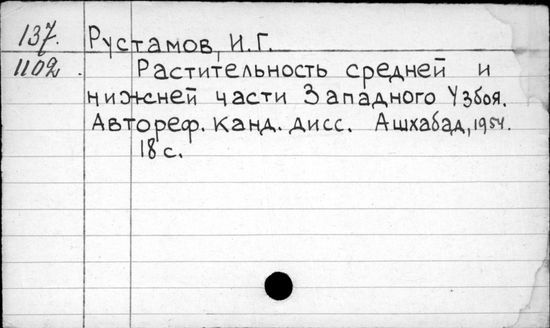 137. Рустамов, И.Г.
1102. Растительность средней и
нижней части Западного Узбоя.
Автореф. канд. дисс. Ашхабад, 1954.
18 с.